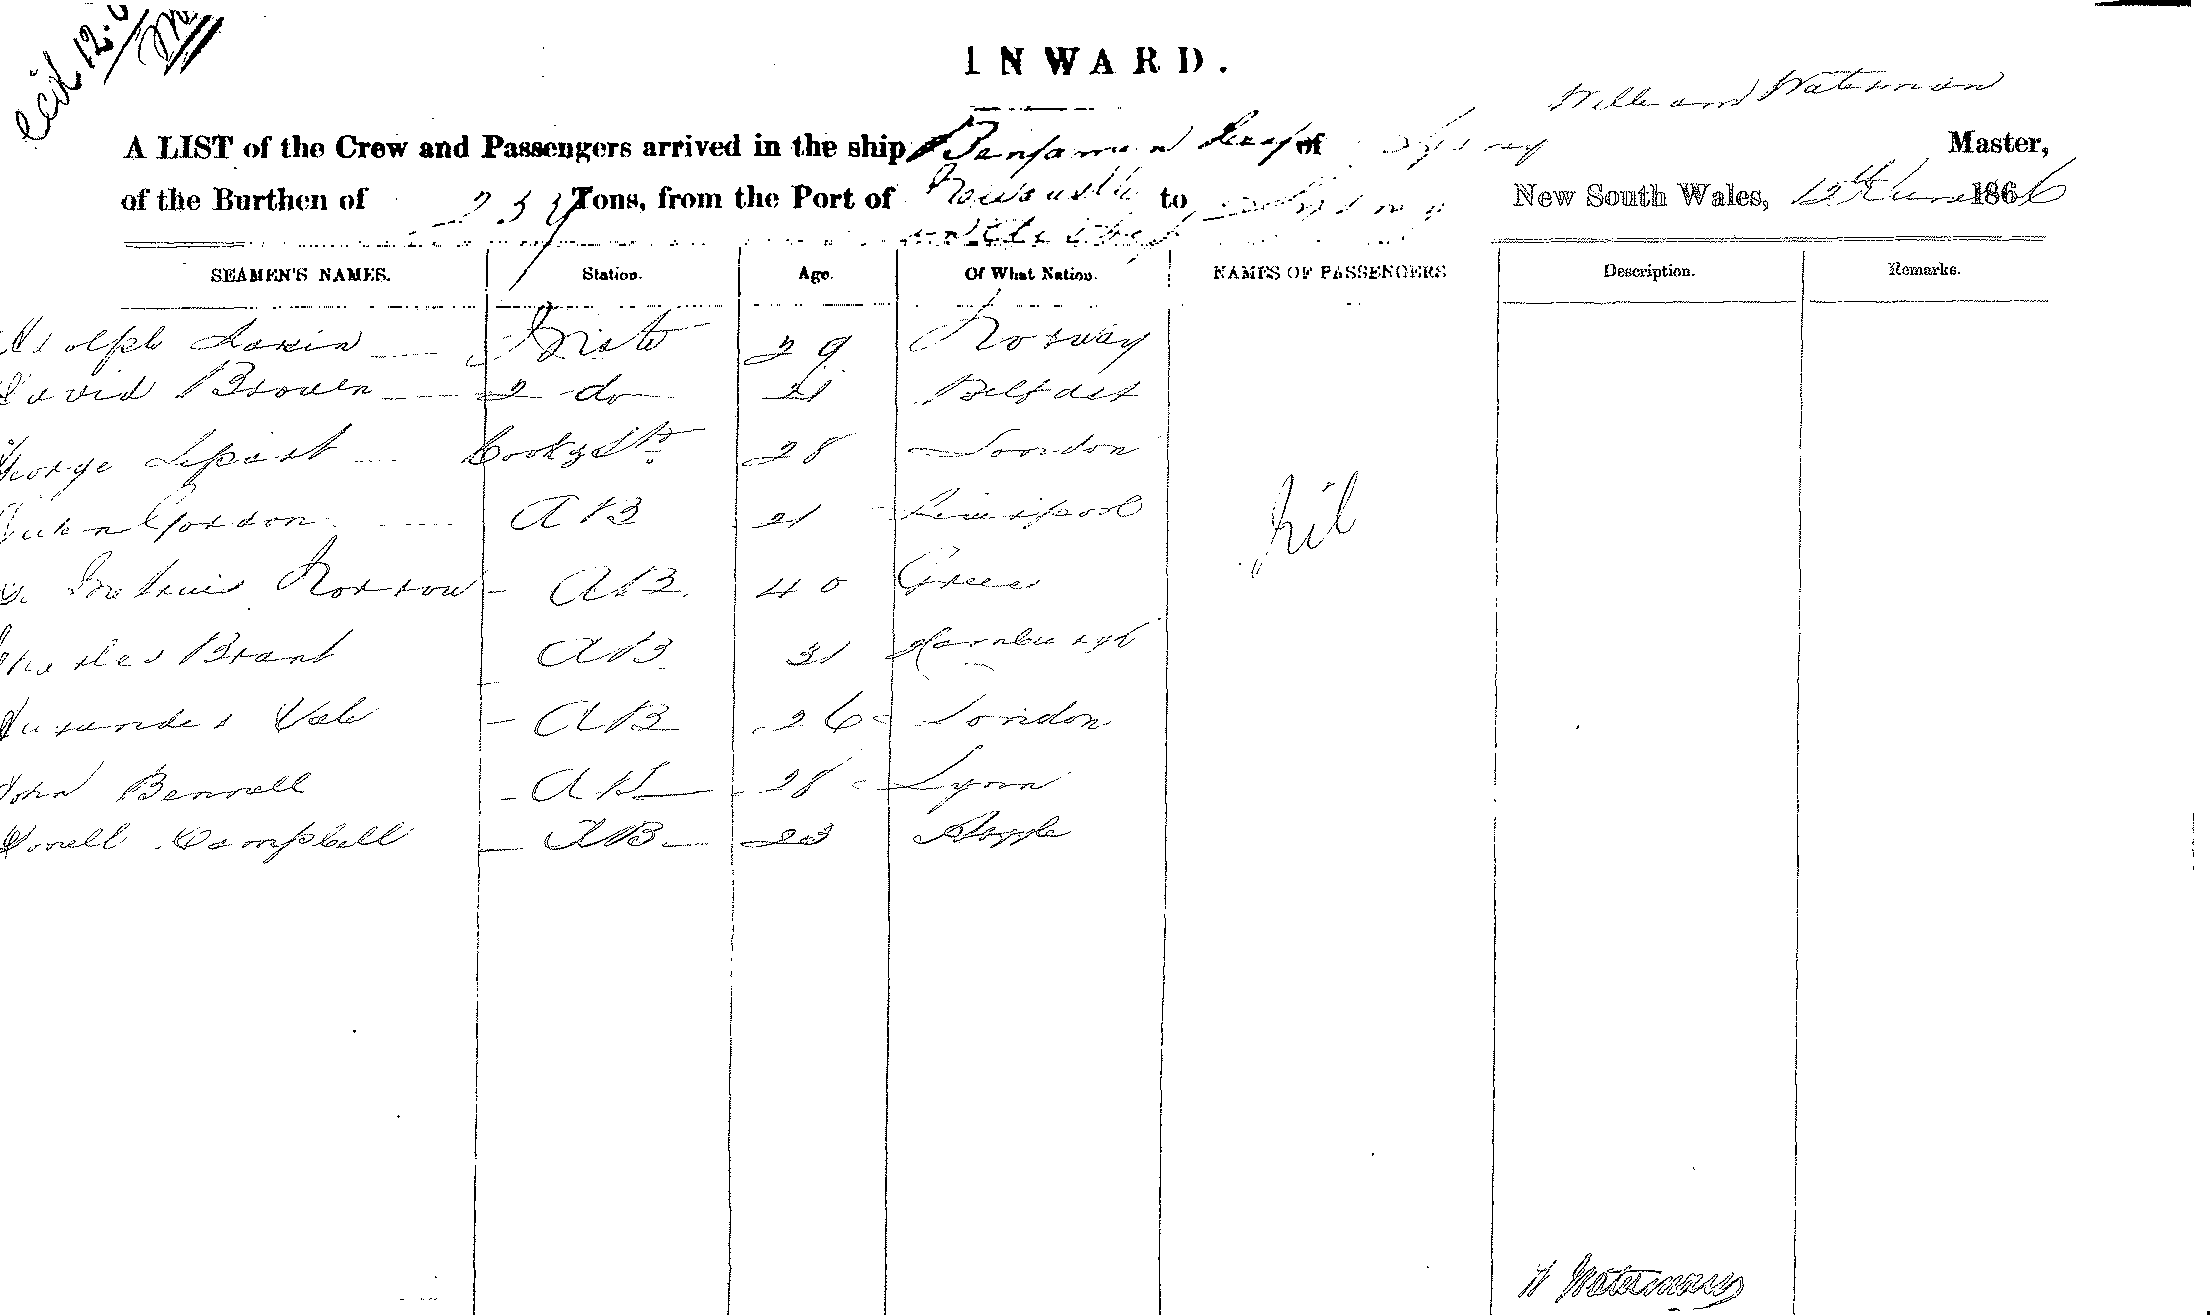 INWARD.
Waterman
A LIST of the Crew and Passengers arrived in the ship Benjamin of Master,
of the Burthen of Tons, from the Port of Newcastle to Sydney New South Wales, 12th June 1866
SEAMEN'S NAMES. Station. Age. Of What Nation. NAMES OF PASSENGERS Description. Remarks.
Mate 29 Norway
David Brown 2 do 21 Belfast
George Cook & Std 28 London
John Gordon AB 21 Liverpool
AB 40 Greece
Charles Brant AB 31 Hamburgh
Vale AB 26 London
John Bennell AB 28 Lynn
Campbell AB 23
Nil
W Waterman